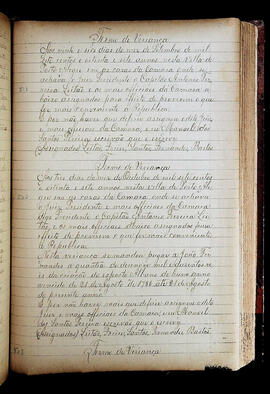 Termo de Veriança
Aos vinte e seis dias do mez de Setembro de mil
sete centos e setenta e sete annos nesta Villa de
Porto Alegre em as casas da Camara onde se
achava o Juiz Presidente o Capitão Antonio Pe-
reira Leitão e os mais officiaes da Camara a
baixo assignados para effeito de proverem o que
for mais conveniente a Republica.
E por não haver que deferir assignou o dito Juiz
e mais officiaes da Camara; e eu Manoel dos
Santos Pereira escrivão que o escrevi
(Assignados) Leitão, Freire, Santos, Fernandes, Bastos
Termo de Veriança
Aos tres dias do mez de Outubro de mil sete centos
e setenta e sete annos nesta villa de Porto Ale-
gre em as casas da Camara onde se achava
o Juiz Presidente e mais officiaes da Camara
digo Presidente o Capitão Antonio Pereira Lei-
tão, e os mais officiaes abaixo assignados para
effeito de proverem o que for mais conveniente
a Republica.
Nesta veriança se mandou pagar a João Fer-
nandes a quantia de
da creação do exposto de hum anno
de 21 de Agosto de 1776 até 21 de Agosto
do presente anno.
E por não haver mais que deferir assignou o dito
Juiz e mais officiaes da Camara; eu Manoel
dos Santos Pereira escrivão que o escrevi
(Assignados) Leitão, Freire, Santos, Fernandes, Bastos.
Termo de Veriança